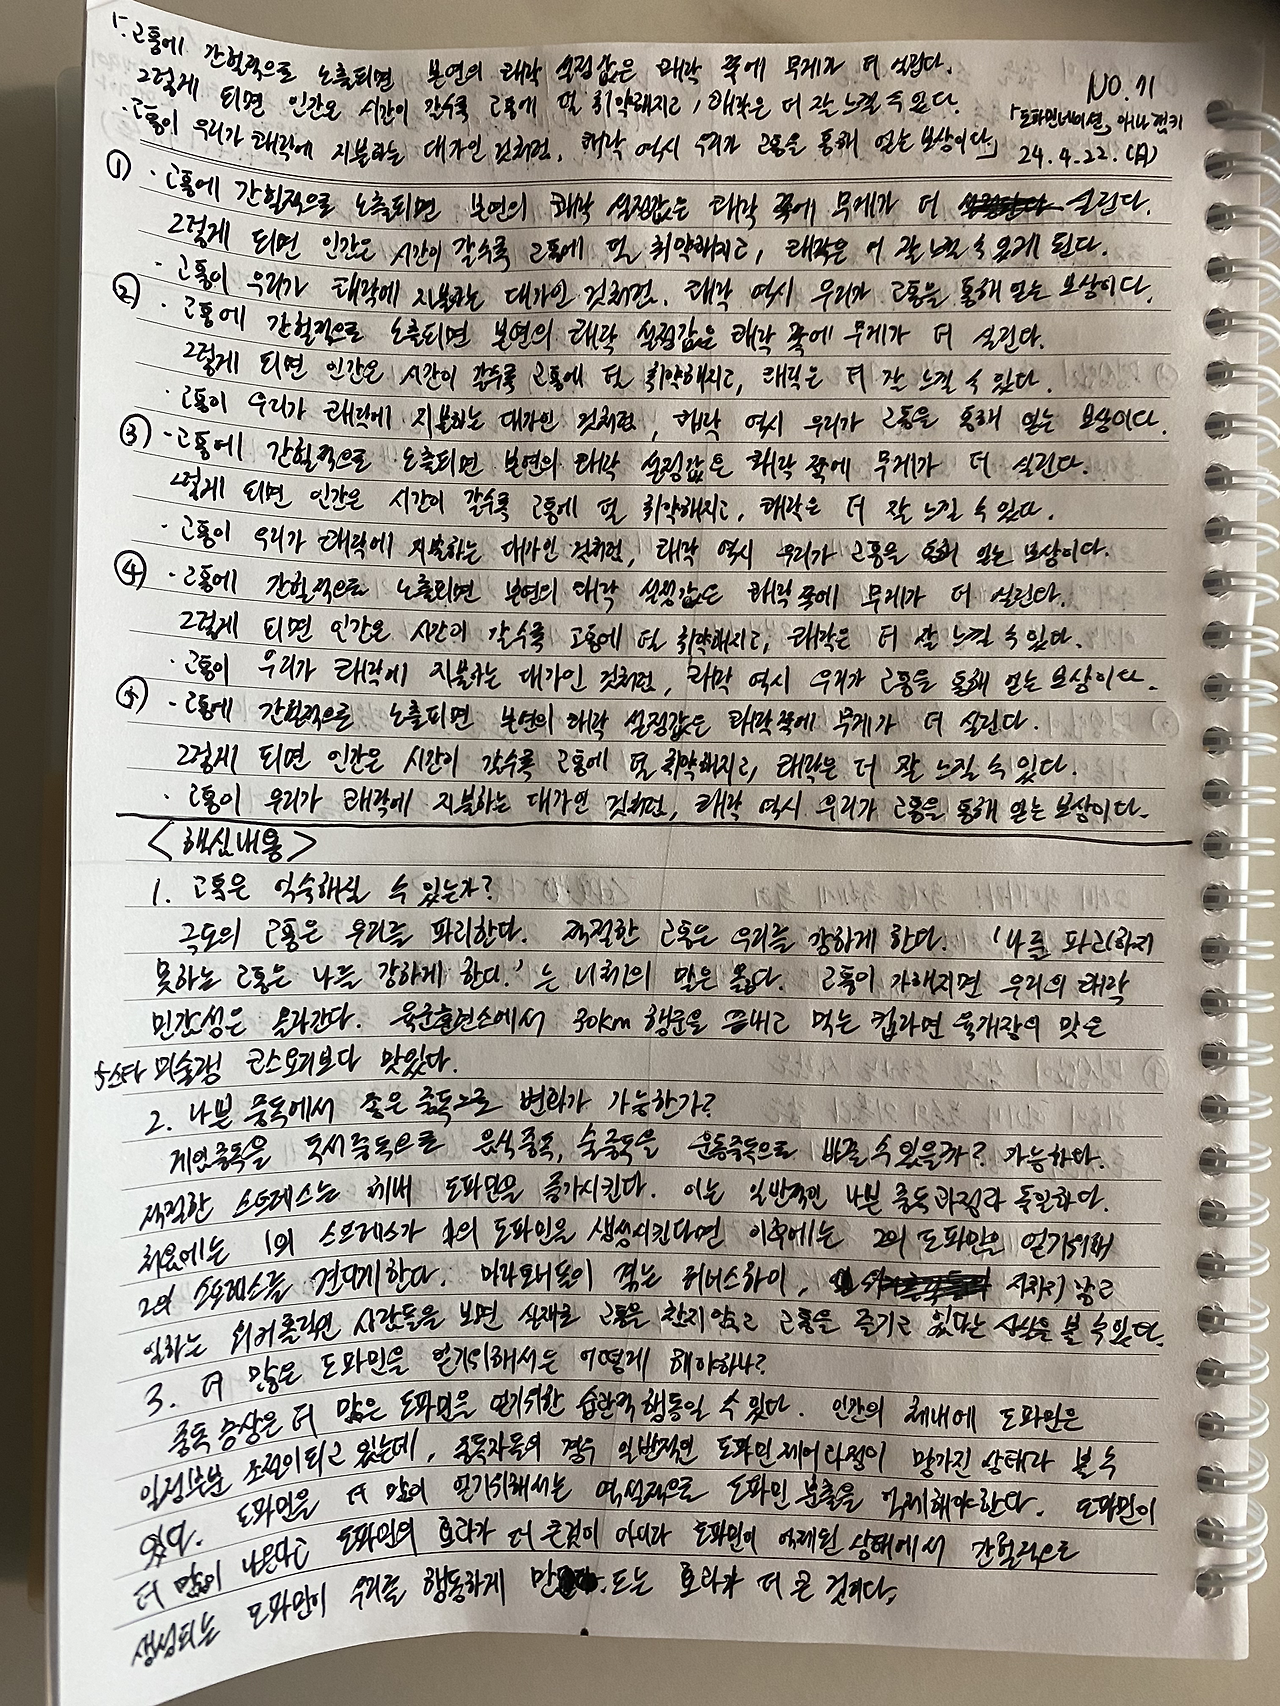 「·고통에 간헐적으로 노출되면 본연의 쾌락 설정값은 쾌락 쪽에 무게가 더 실린다.
그렇게 되면 인간은 시간이 갈수록 고통에 덜 취약해지고, 쾌락은 더 잘 느낄 수 있다.
NO. 71
·고통이 우리가 쾌락에 지불하는 대가인 것처럼, 쾌락 역시 우리가 고통을 통해 얻는 보상이다.」
「도파민네이션, 애나 렘키
24.4.22.(月)
① ·고통에 간헐적으로 노출되면 본연의 쾌락 설정값은 쾌락 쪽에 무게가 더 실린다.
그렇게 되면 인간은 시간이 갈수록 고통에 덜 취약해지고, 쾌락은 더 잘 느낄 수 있게 된다.
·고통이 우리가 쾌락에 지불하는 대가인 것처럼, 쾌락 역시 우리가 고통을 통해 얻는 보상이다.
② ·고통에 간헐적으로 노출되면 본연의 쾌락 설정값은 쾌락 쪽에 무게가 더 실린다.
그렇게 되면 인간은 시간이 갈수록 고통에 덜 취약해지고, 쾌락은 더 잘 느낄 수 있다.
·고통이 우리가 쾌락에 지불하는 대가인 것처럼, 쾌락 역시 우리가 고통을 통해 얻는 보상이다.
③ ·고통에 간헐적으로 노출되면 본연의 쾌락 설정값은 쾌락 쪽에 무게가 더 실린다.
그렇게 되면 인간은 시간이 갈수록 고통에 덜 취약해지고, 쾌락은 더 잘 느낄 수 있다.
·고통이 우리가 쾌락에 지불하는 대가인 것처럼, 쾌락 역시 우리가 고통을 통해 얻는 보상이다.
④ ·고통에 간헐적으로 노출되면 본연의 쾌락 설정값은 쾌락 쪽에 무게가 더 실린다.
그렇게 되면 인간은 시간이 갈수록 고통에 덜 취약해지고, 쾌락은 더 잘 느낄 수 있다.
·고통이 우리가 쾌락에 지불하는 대가인 것처럼, 쾌락 역시 우리가 고통을 통해 얻는 보상이다.
⑤ ·고통에 간헐적으로 노출되면 본연의 쾌락 설정값은 쾌락쪽에 무게가 더 실린다.
그렇게 되면 인간은 시간이 갈수록 고통에 덜 취약해지고, 쾌락은 더 잘 느낄 수 있다.
·고통이 우리가 쾌락에 지불하는 대가인 것처럼, 쾌락 역시 우리가 고통을 통해 얻는 보상이다.
<핵심내용>
1. 고통은 익숙해질 수 있는가?
극도의 고통은 우리를 파괴한다. 적절한 고통은 우리를 강하게 한다. '나를 파괴하지
못하는 고통은 나를 강하게 한다.'는 니체의 말은 옳다. 고통이 가해지면 우리의 쾌락
민감성은 올라간다. 육군훈련소에서 30km 행군을 끝내고 먹는 컵라면 육개장의 맛은
5스타 미슐랭 코스요리보다 맛있다.
2. 나쁜 중독에서 좋은 중독으로 변화가 가능한가?
게임중독을 독서중독으로 음식중독, 술중독을 운동중독으로 바꿀 수 있을까? 가능하다.
적절한 스트레스는 체내 도파민을 증가시킨다. 이는 일반적인 나쁜 중독과정과 동일하다.
처음에는 1의 스트레스가 1의 도파민을 생성시킨다면 이후에는 2의 도파민을 얻기위해
2의 스트레스를 견디게한다. 마라토너들이 겪는 러너스하이, 지치지 않고
일하는 워커홀릭인 사람들을 보면 실제로 고통을 참지않고 고통을 즐기고 있다는 사실을 볼 수있다.
3. 더 많은 도파민을 얻기위해서는 어떻게 해야하나?
중독 증상은 더 많은 도파민을 얻기위한 습관적 행동일 수 있다. 인간의 체내에 도파민은
일정부분 조절이되고 있는데, 중독자들의 경우 일반적인 도파민 제어과정이 망가진 상태라 볼 수
있다. 도파민을 더 많이 얻기위해서는 역설적으로 도파민 분출을 억제해야한다. 도파민이
더 많이 나온다고 도파민의 효과가 더 큰것이 아니라 도파민이 억제된 상태에서 간헐적으로
생성되는 도파민이 우리를 행동하게 만드는 효과가 더 큰 것이다.